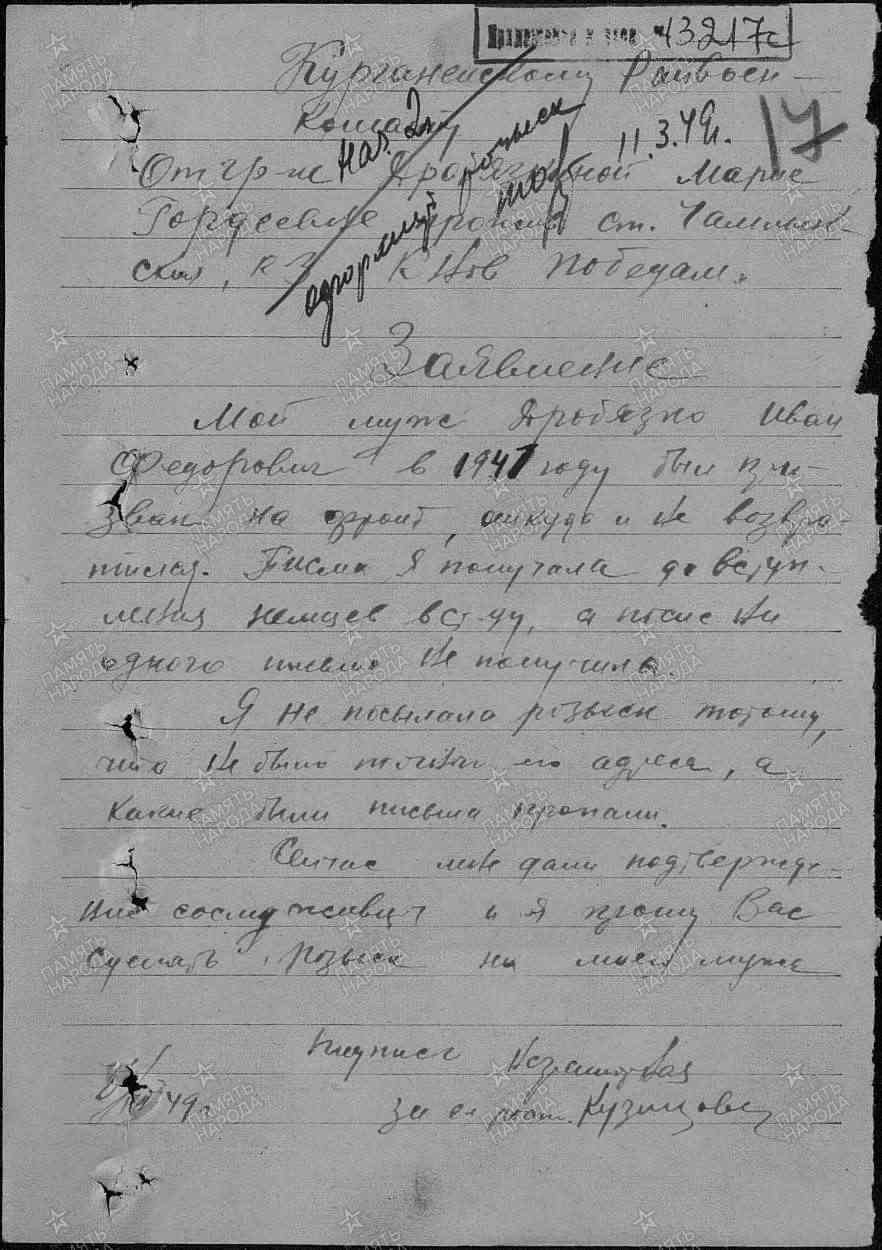 43217с
Курганенскому Райвоен-
комату
17
11.3.49г.
Нач. 2ч
оформить розыск
От гр-ки Дробязкиной Марие
Гордеевне прожив ст. Чамлык-
ская, к-з К Нов Победам.
Заявление
Мой муж Дробязко Иван
Федорович в 1941 году был при-
зван на фронт, откуда и не возвра-
тился. Писма я получала до вступ-
ления немцев в ст-цу, а после ни
одного письма не получила.
Я не посылала розыск потому,
что не было точный его адреса, а
какие были письма пропали.
Сейчас мне дали подтвержде-
ние сослуживцы и я прошу Вас
сделать розыск на моего мужа
Подпись Неграмотная
49г. за ея росп. Кузнцова